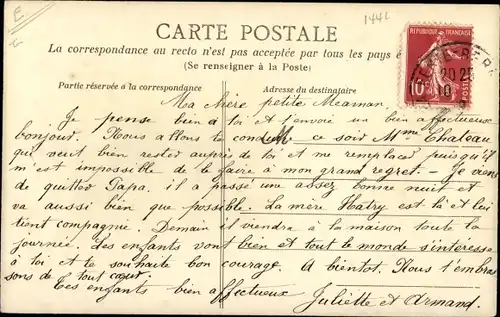 E
1441
CARTE POSTALE
La correspondance au recto n'est pas acceptée par tous les pays é
(Se renseigner à la Poste)
Partie réservée à la correspondance
Adresse du destinataire
RÉPUBLIQUE FRANÇAISE
10
POSTES
20 2
10
Ma chère petite Meaman.
Je pense bien à toi et t'envoie un bien affectueux
bonjour. Nous allons te conduire ce soir Mme Chateau
qui veut bien rester auprès de toi et me remplacer puisqu'il
m'est impossible de le faire à mon grand regret. – Je viens
de quitter Papa. il a passé une assez bonne nuit et
va aussi bien que possible. La mère Hatry est là et lui
tient compagnie. Demain il viendra à la maison toute la
journée. Les enfants vont bien et tout le monde s'intéresse
à toi et te souhaite bon courage. À bientôt. Nous t'embras
sons de tout cœur.
Tes enfants bien affectueux
Juliette et Armand.